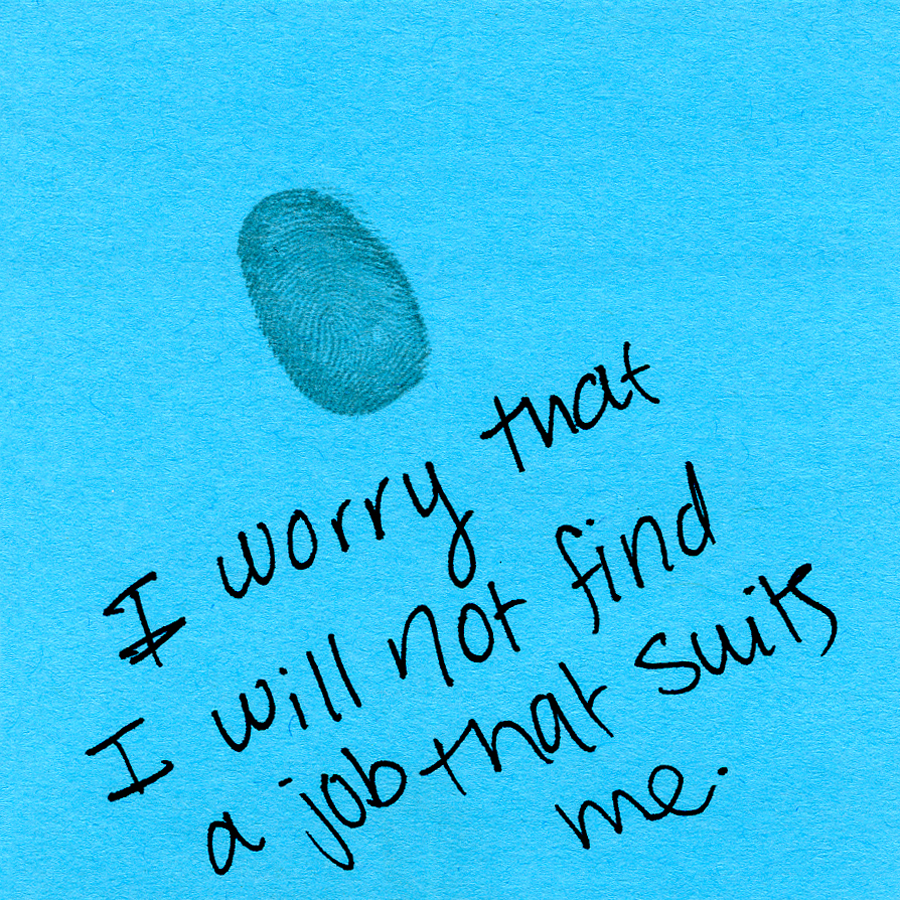 I worry that
I will not find
a job that suits
me.